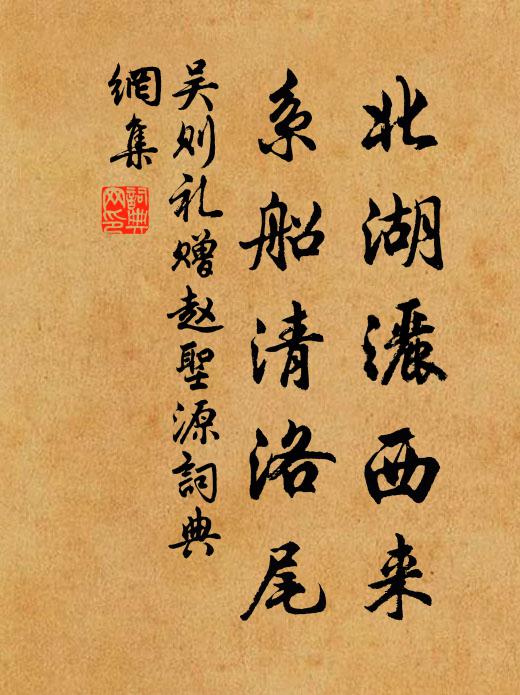 北湖瀍西来
系船清洛尾
吴则礼赠赵聖源詞典
網集
詞典
网印